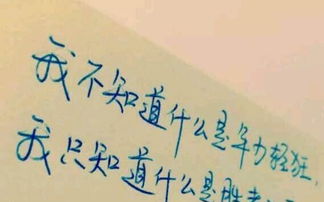 我不知道什么是年力轻狂，
我只知道什么是胜者